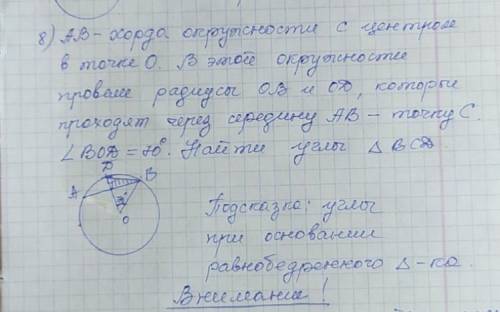 8) АВ - хорда окружности с центром
в точке О. В этой окружности
провели радиусы ОВ и ОD, которые
проходят через середину АВ - точку С.
∠BOD = 70°. Найти углы Δ BCD.
D
A
B
O
Подсказка: углы
при основании
равнобедренного Δ-ка.
Внимание!